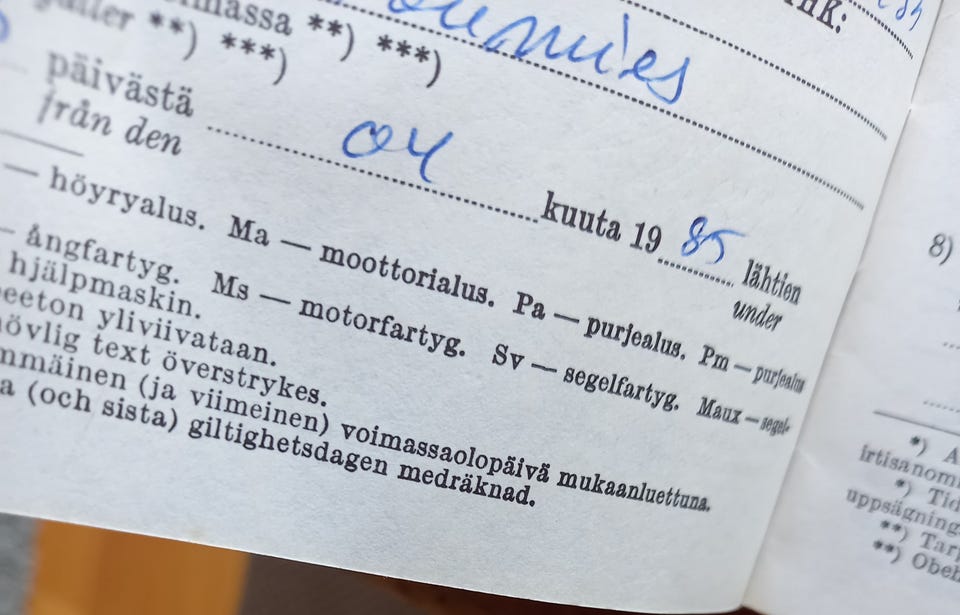 massa **) ***)
**) ***)
päivästä 04 kuuta 1985 lähtien
från den under
— höyryalus. Ma — moottorialus. Pa — purjealus. Pm — purjealus
— ångfartyg. Ms — motorfartyg. Sv — segelfartyg. Maux — segel-
hjälpmaskin.
yliviivataan.
text överstrykes.
(ja viimeinen) voimassaolopäivä mukaanluettuna.
(och sista) giltighetsdagen medräknad.
8)
*) A
irtisanom
*) Tid
uppsägning
**) Tarp
**) Obeh